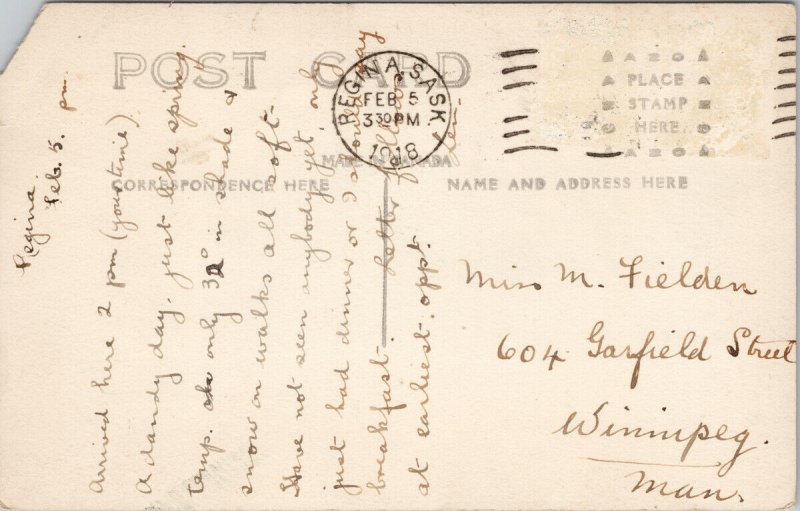 POST CARD
REGINA SASK.
FEB 5
3 30 PM
1918
AZO
PLACE
STAMP
HERE
AZO
MADE IN CANADA
CORRESPONDENCE HERE
NAME AND ADDRESS HERE
Regina
Feb. 5. pm
Arrived here 2 pm (your time)
A dandy day, just like spring,
temp. only 32° in shade &
snow on walks all soft.
Have not seen anybody yet, only
just had dinner or I should say
breakfast. Letter following
at earliest oppt.
Miss M. Fielden
604 Garfield Street
Winnipeg.
Man.